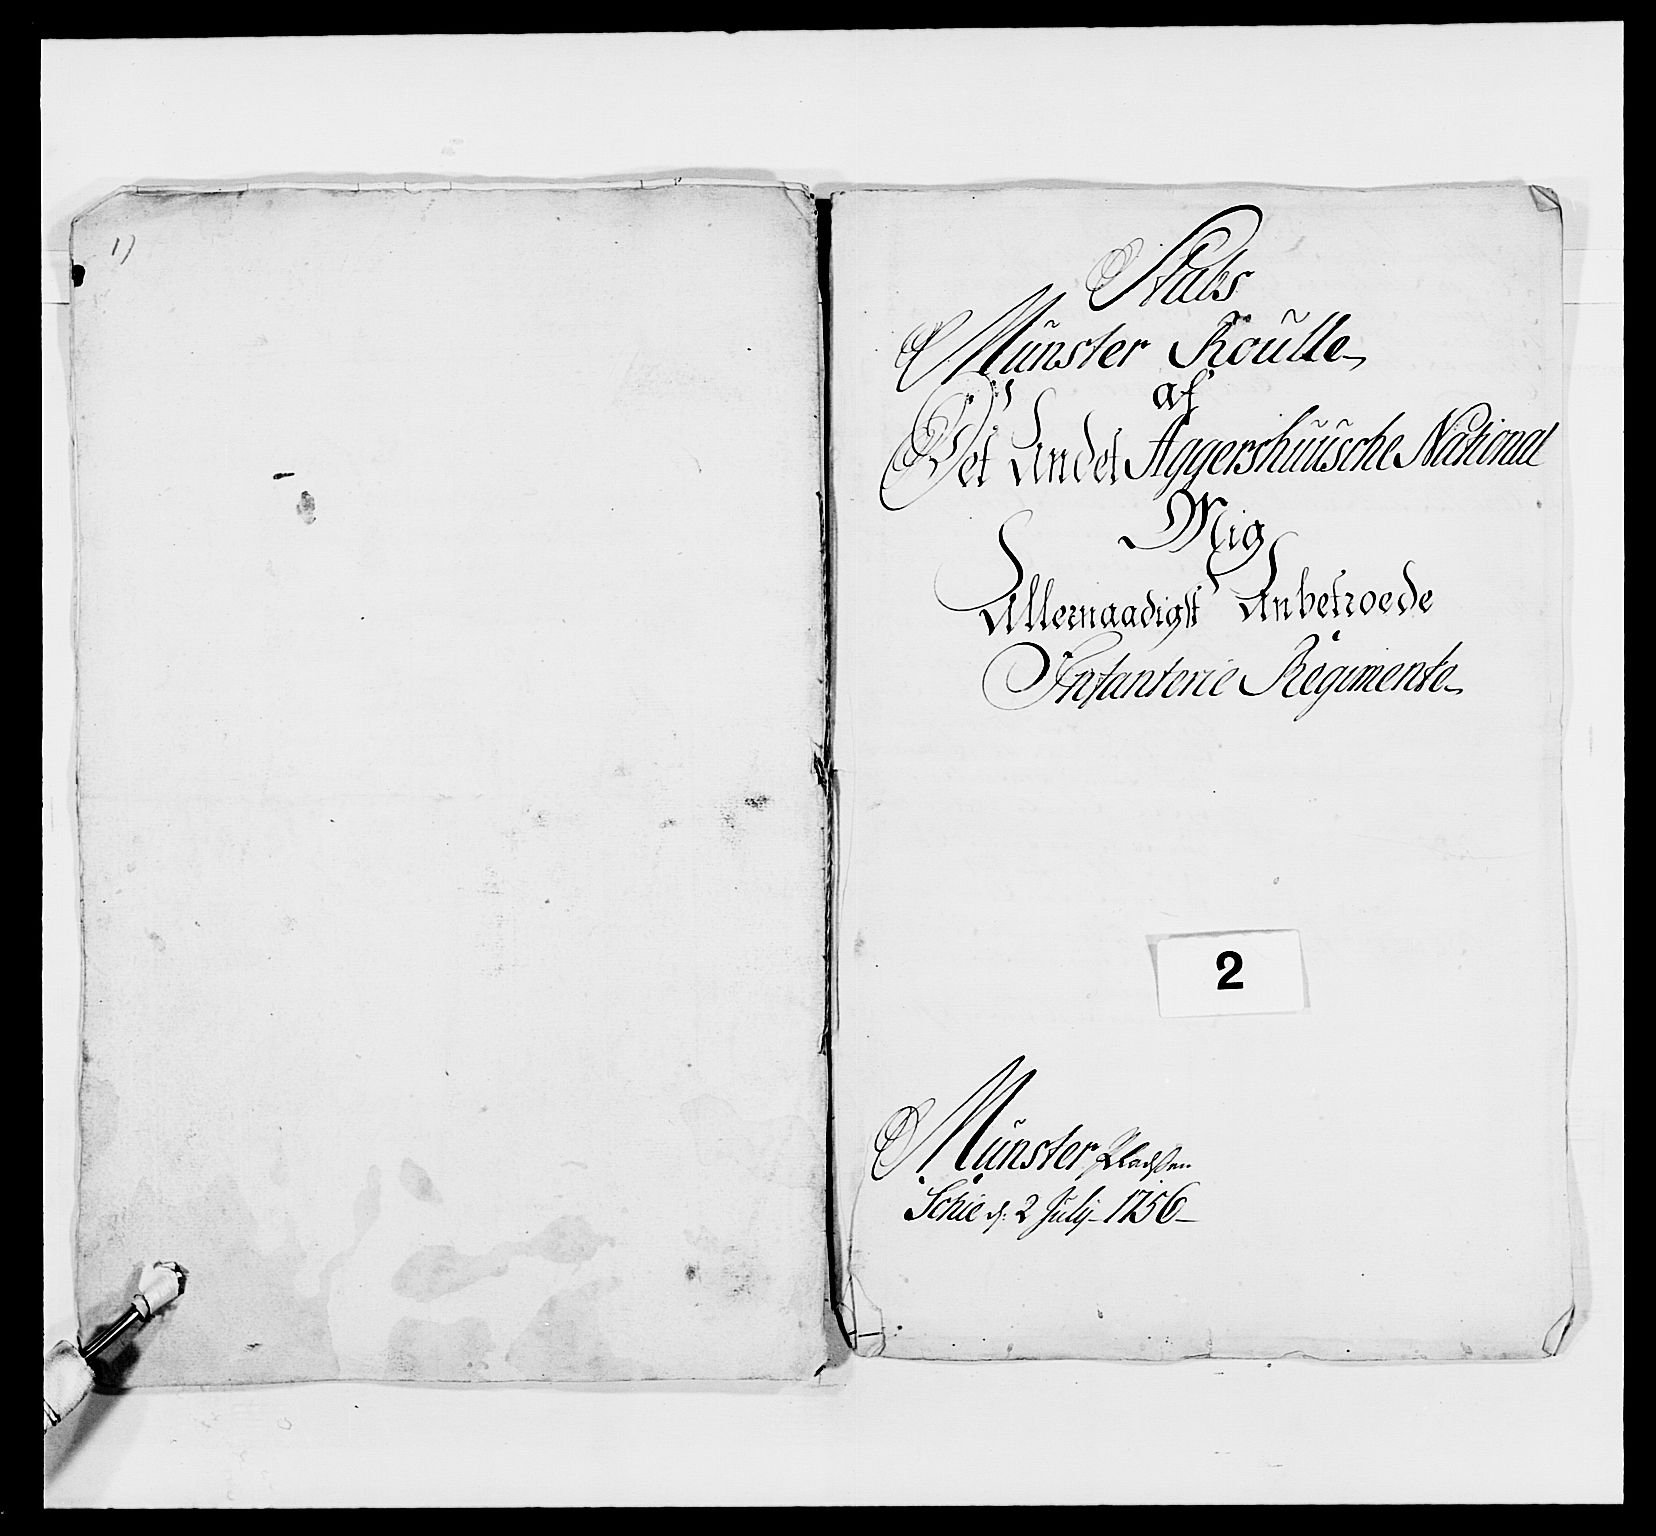 1)
Stabs
Münster Roülle
af
Det Andet Aggershuusche National
Mig
Allernaadigst Anbetroede
Infanterie Regimente
2
Münster Pladsen
Schie d: 2 July 1756